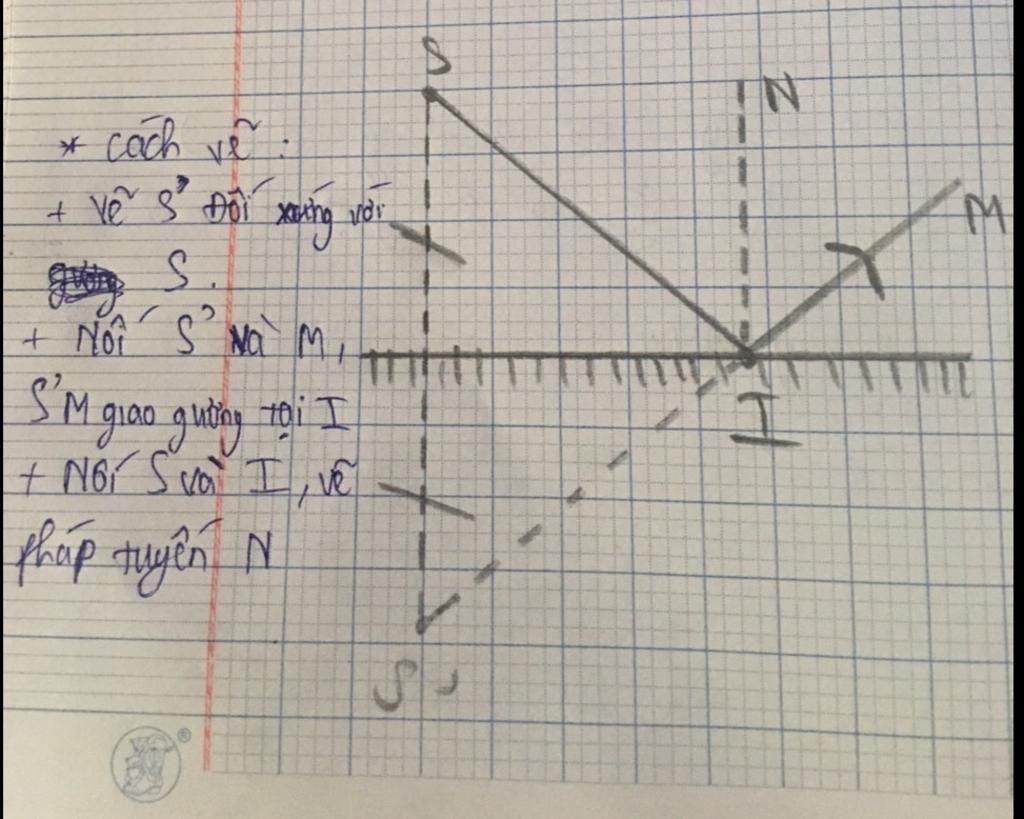 * cách vẽ :
+ Vẽ S' Đối xứng với
S.
+ Nối S' và M,
S'M giao gương tại I
+ Nối S và I, vẽ
pháp tuyến N
S
N
M
I
S'
®